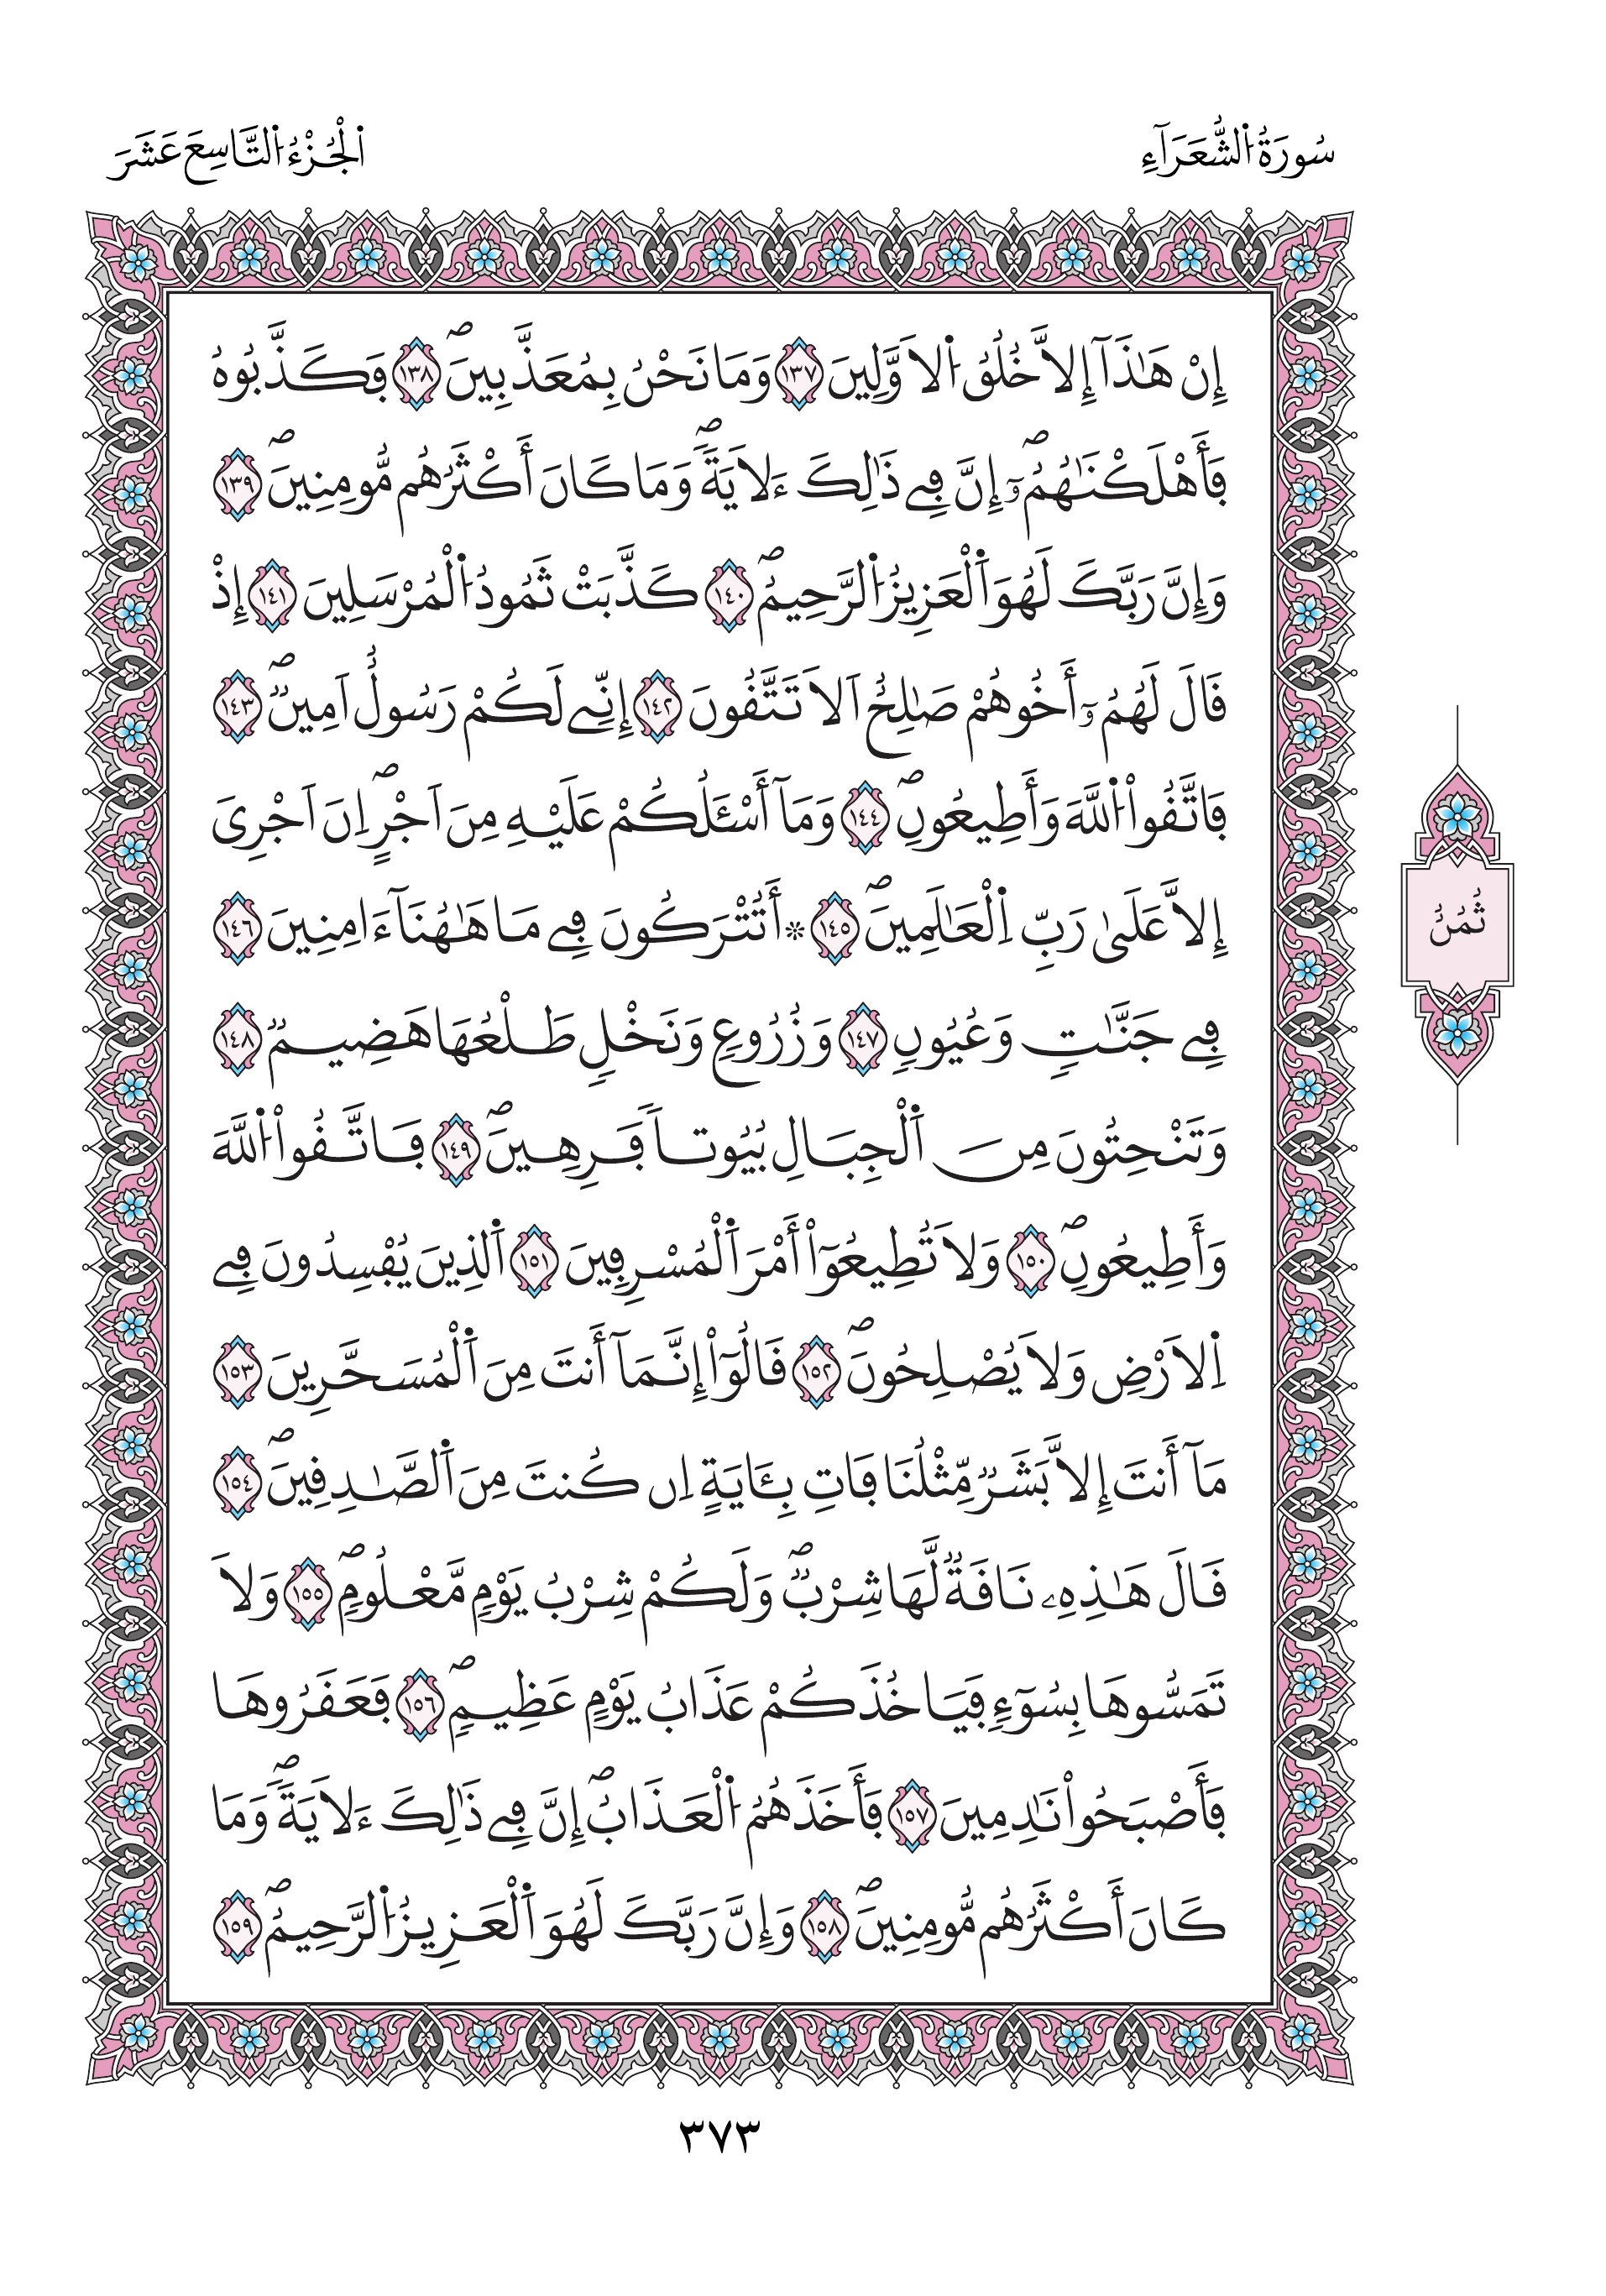 سُورَةُ اُ۬لشُّعَرَآءِ
اُ۬لْجُزْءُ اُ۬لتَّاسِعَ عَشَرَ
إِنْ هَٰذَآ إِلَّا خُلُقُ اُ۬لَاوَّلِينَ ١٣٧ وَمَا نَحْنُ بِمُعَذَّبِينَۖ ١٣٨ فَكَذَّبُوهُ
فَأَهْلَكْنَٰهُمُۥٓۖ إِنَّ فِے ذَٰلِكَ ءَلَايَةَۖ وَمَا كَانَ أَكْثَرُهُم مُّومِنِينَۖ ١٣٩
وَإِنَّ رَبَّكَ لَهُوَ اَ۬لْعَزِيزُ اُ۬لرَّحِيمُۖ ١٤٠ كَذَّبَتْ ثَمُودُ اُ۬لْمُرْسَلِينَ ١٤١ إِذْ
قَالَ لَهُمُۥٓ أَخُوهُمْ صَٰلِحٌ اَلَا تَتَّقُونَ ١٤٢ إِنِّے لَكُمْ رَسُولٌ اَمِينٞۖ ١٤٣
فَاتَّقُواْ اُ۬للَّهَ وَأَطِيعُونِۖ ١٤٤ وَمَآ أَسْـَٔلُكُمْ عَلَيْهِ مِنَ اَجْرٍۖ اِنَ اَجْرِىَ
إِلَّا عَلَىٰ رَبِّ اِ۬لْعَٰلَمِينَۖ ١٤٥ ۞ أَتُتْرَكُونَ فِے مَا هَٰهُنَآ ءَامِنِينَ ١٤٦
فِے جَنَّٰتٖ وَعُيُونٖ ١٤٧ وَزُرُوعٖ وَنَخْلٖ طَلْعُهَا هَضِيمٞ ١٤٨
وَتَنْحِتُونَ مِنَ اَ۬لْجِبَالِ بُيُوتاٗ فَرِهِينَۖ ١٤٩ فَاتَّقُواْ اُ۬للَّهَ
وَأَطِيعُونِۖ ١٥٠ وَلَا تُطِيعُوٓاْ أَمْرَ اَ۬لْمُسْرِفِينَ ١٥١ اَ۬لذِينَ يُفْسِدُونَ فِے
اِ۬لَارْضِ وَلَا يُصْلِحُونَۖ ١٥٢ قَالُوٓاْ إِنَّمَآ أَنتَ مِنَ اَ۬لْمُسَحَّرِينَ ١٥٣
مَآ أَنتَ إِلَّا بَشَرٞ مِّثْلُنَا فَاتِ بِـَٔايَةٍ اِن كُنتَ مِنَ اَ۬لصَّٰدِقِينَۖ ١٥٤
قَالَ هَٰذِهِۦ نَاقَةٞ لَّهَا شِرْبٞۖ وَلَكُمْ شِرْبُ يَوْمٖ مَّعْلُومٖۖ ١٥٥ وَلَا
تَمَسُّوهَا بِسُوٓءٖ فَيَاخُذَكُمْ عَذَابُ يَوْمٍ عَظِيمٖۖ ١٥٦ فَعَقَرُوهَا
فَأَصْبَحُواْ نَٰدِمِينَ ١٥٧ فَأَخَذَهُمُ اُ۬لْعَذَابُۖ إِنَّ فِے ذَٰلِكَ ءَلَايَةَۖ وَمَا
كَانَ أَكْثَرُهُم مُّومِنِينَۖ ١٥٨ وَإِنَّ رَبَّكَ لَهُوَ اَ۬لْعَزِيزُ اُ۬لرَّحِيمُۖ ١٥٩
ثُمُنُ
٣٧٣